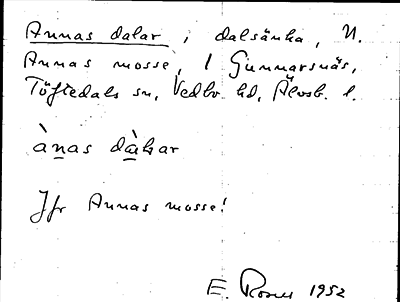 Annas dalar, dalsänka, N.
Annas mosse, l Gunnarsnäs,
Töftedals sn, Vedbo hd, Älvsb. l.
ànas dàlsar
Jfr Annas mosse!
E. Rosell 1952